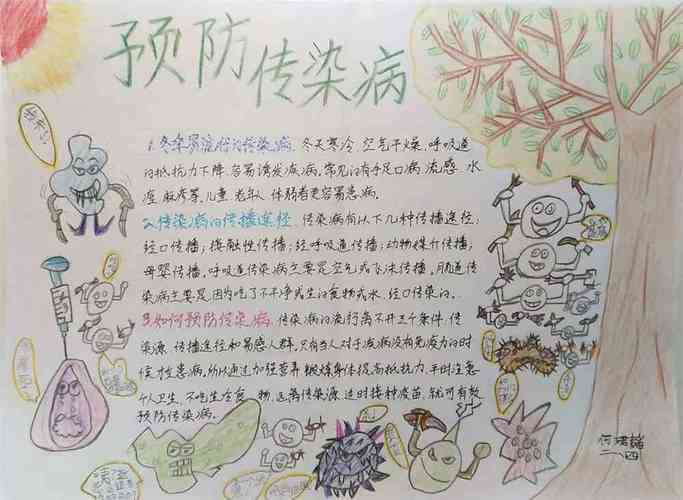 预防传染病
1.冬季易流行的传染病. 冬天寒冷, 空气干燥, 呼吸道
的抵抗力下降, 容易诱发疾病, 常见的有手足口病, 流感, 水
痘, 麻疹等, 儿童, 老年人, 体弱者更容易患病.
2.传染病的传播途径. 传染病有以下几种传播途径;
经口传播; 接触性传播; 经呼吸道传播; 动物媒介传播;
母婴传播。呼吸道传染病主要是空气或飞沫传播。肠道传
染病主要是因为吃了不干净或生的食物或水, 经口传染的。
3.如何预防传染病. 传染病的流行离不开三个条件, 传
染源, 传播途径和易感人群。只有当人对于疾病没有免疫力的时
候才生患病, 所以通过加强营养 锻炼身体提高抵抗力, 平时注意
个人卫生, 不吃生冷食物, 远离传染源, 适时接种疫苗, 就可有效
预防传染病。
二、四